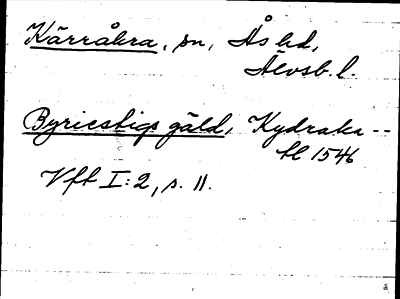 Kärråkra, sn, Ås hd,
Älvsb. l.
Byriestigs gäld, Kydraka --
tl 1546
Vft I:2, s. 11.